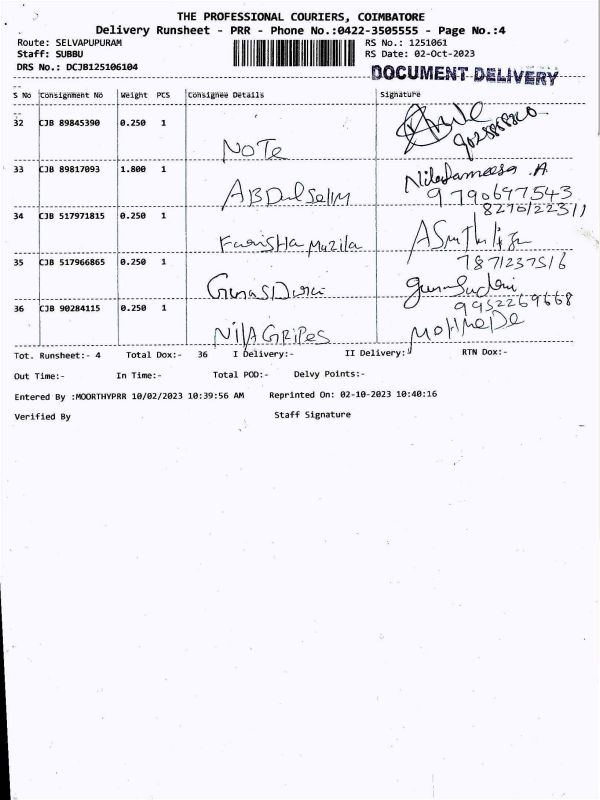 THE PROFESSIONAL COURIERS, COIMBATORE
Delivery Runsheet - PRR - Phone No.:0422-3505555 - Page No.:4
Route: SELVAPUPURAM RS No.: 1251061
Staff: SUBBU RS Date: 02-Oct-2023
DRS No.: DCJB125106104 DOCUMENT DELIVERY
S No Consignment No Weight PCS Consignee Details Signature
32 CJB 89845390 0.250 1
NOTE
33 CJB 89817093 1.800 1
ABDul SelIM 9790697543
34 CJB 517971815 0.250 1 8270122311
FariSHa Muzila
35 CJB 517966865 0.250 1 7871237516
36 CJB 90284115 0.250 1 9952269668
NIlAGRIPES
Tot. Runsheet:- 4 Total Dox:- 36 I Delivery:- II Delivery:- RTN Dox:-
Out Time:- In Time:- Total POD:- Delvy Points:-
Entered By :MOORTHYPRR 10/02/2023 10:39:56 AM Reprinted On: 02-10-2023 10:40:16
Verified By Staff Signature